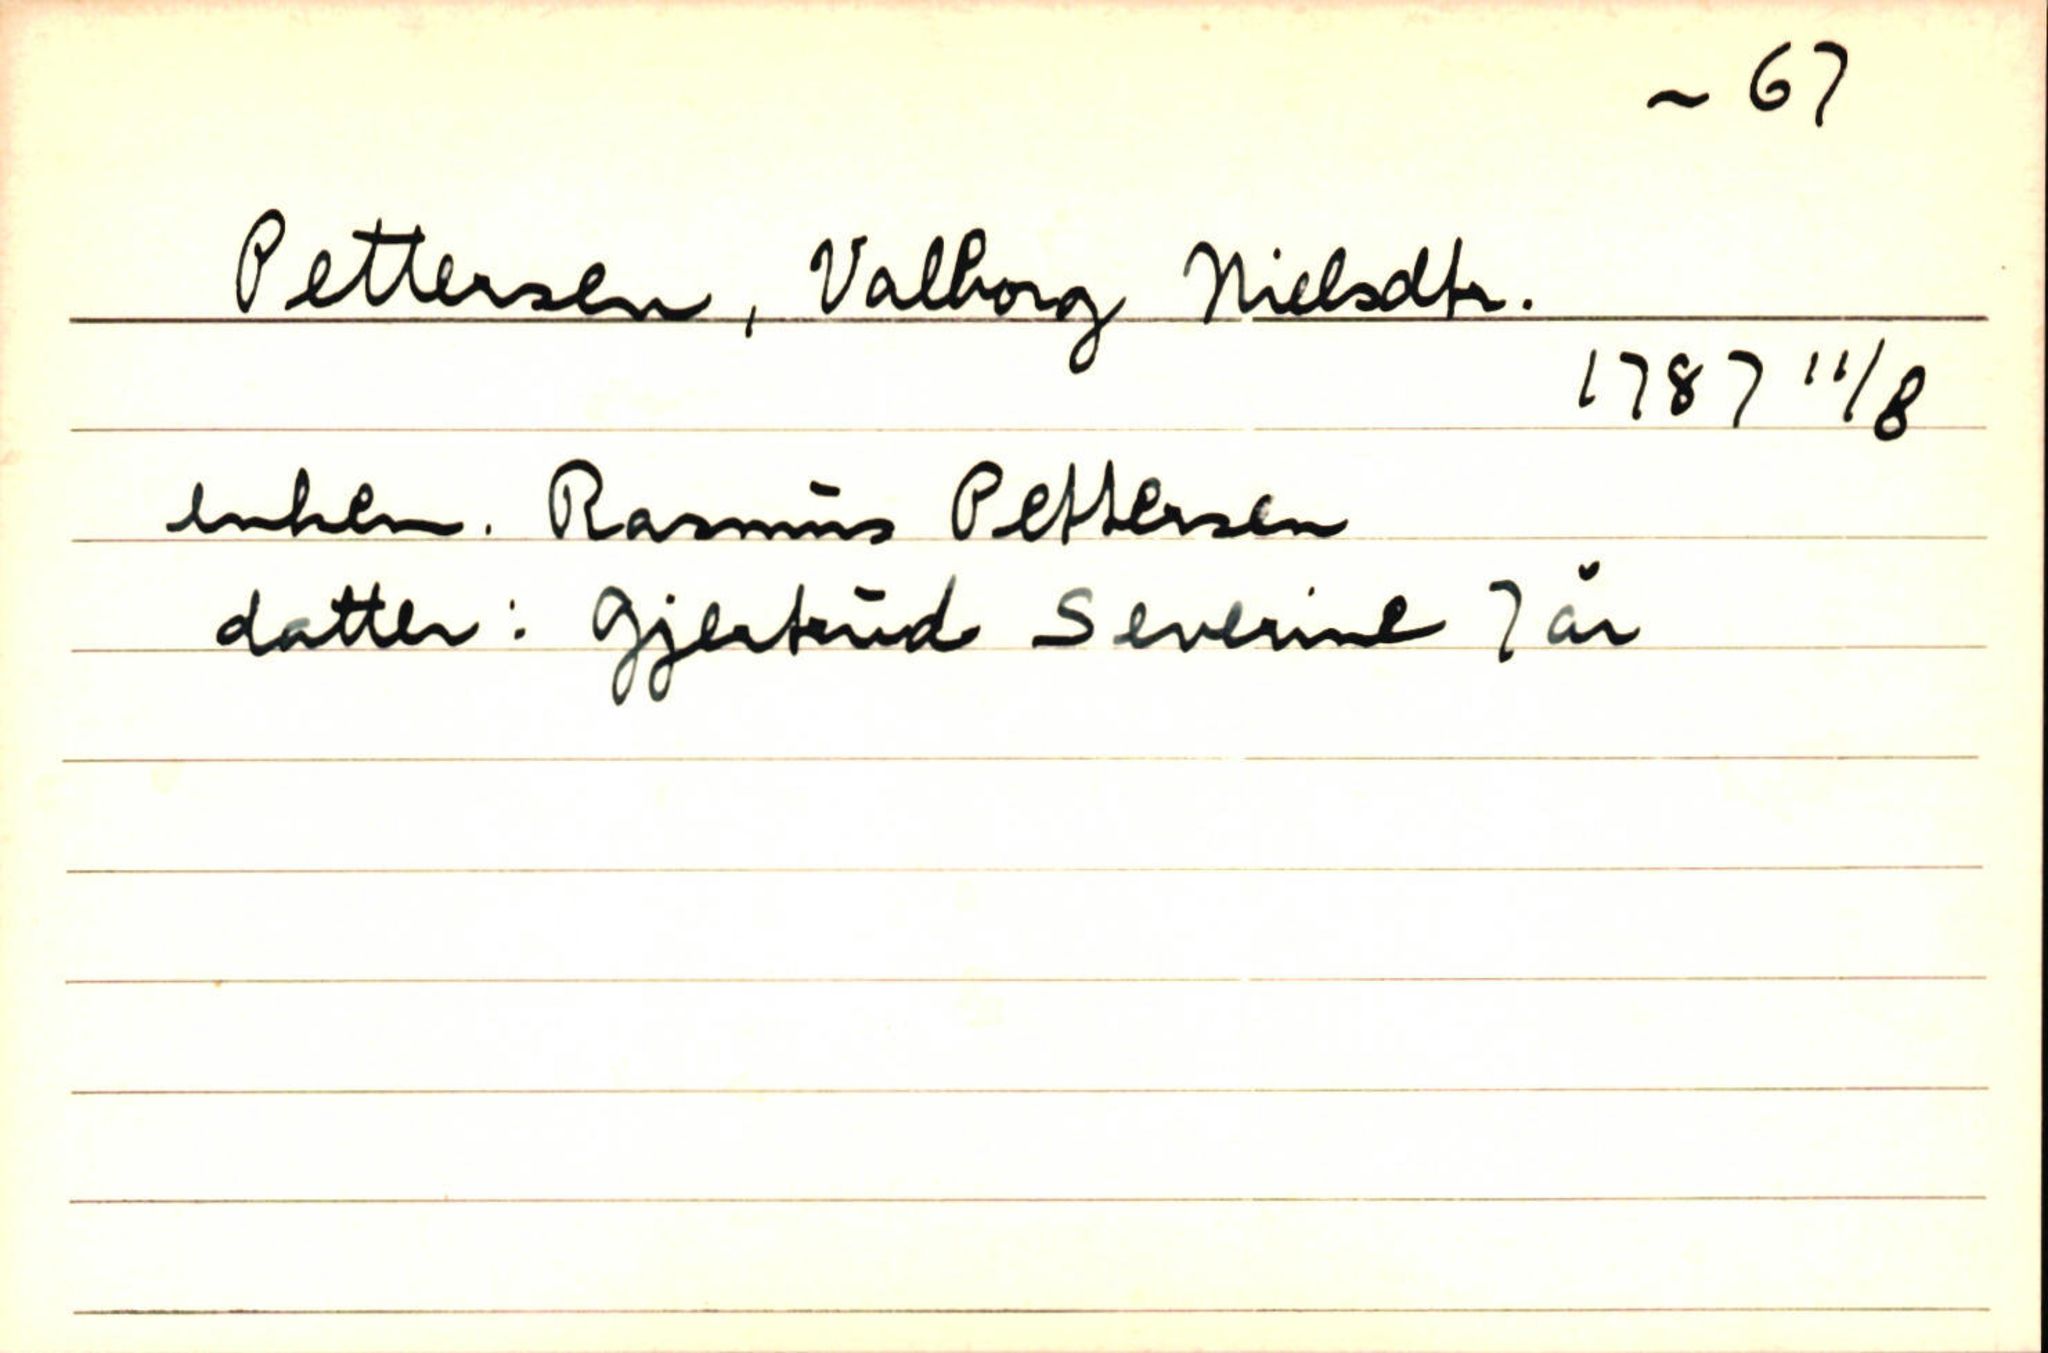 ~ 67
Pettersen, Valborg Nielsdtr.
1787 11/8
enkem. Rasmus Pettersen
datter: Gjertrud Severine 7 år